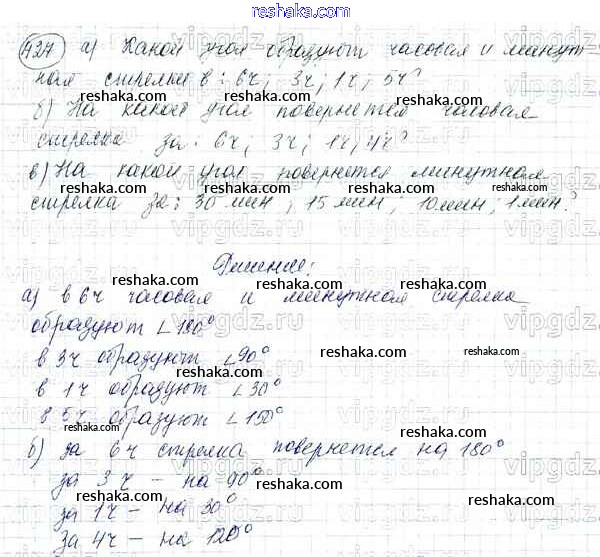 reshaka.com
427 а) Какой угол образуют часовая и минут
ная стрелки в: 6ч; 3ч; 1ч; 5ч?
reshaka.com
б) На какой угол повернется часовая
reshaka.com
стрелка за: 6ч; 3ч; 1ч; 4ч?
reshaka.com
в) На какой угол повернется минутная
reshaka.com reshaka.com
стрелка за: 30 мин; 15 мин; 10 мин; 1 мин?
reshaka.com
Решение:
reshaka.com
а) в 6ч часовая и минутная стрелка
reshaka.com
образуют ∠180°
reshaka.com
в 3ч образуют ∠90°
reshaka.com
в 1ч образуют ∠30°
reshaka.com
в 5ч образуют ∠150°
reshaka.com reshaka.com
б) за 6ч стрелка повернется на 180°
за 3ч – на 90°
reshaka.com
за 1ч – на 30°
reshaka.com
за 4ч – на 120°
vipgdz.ru